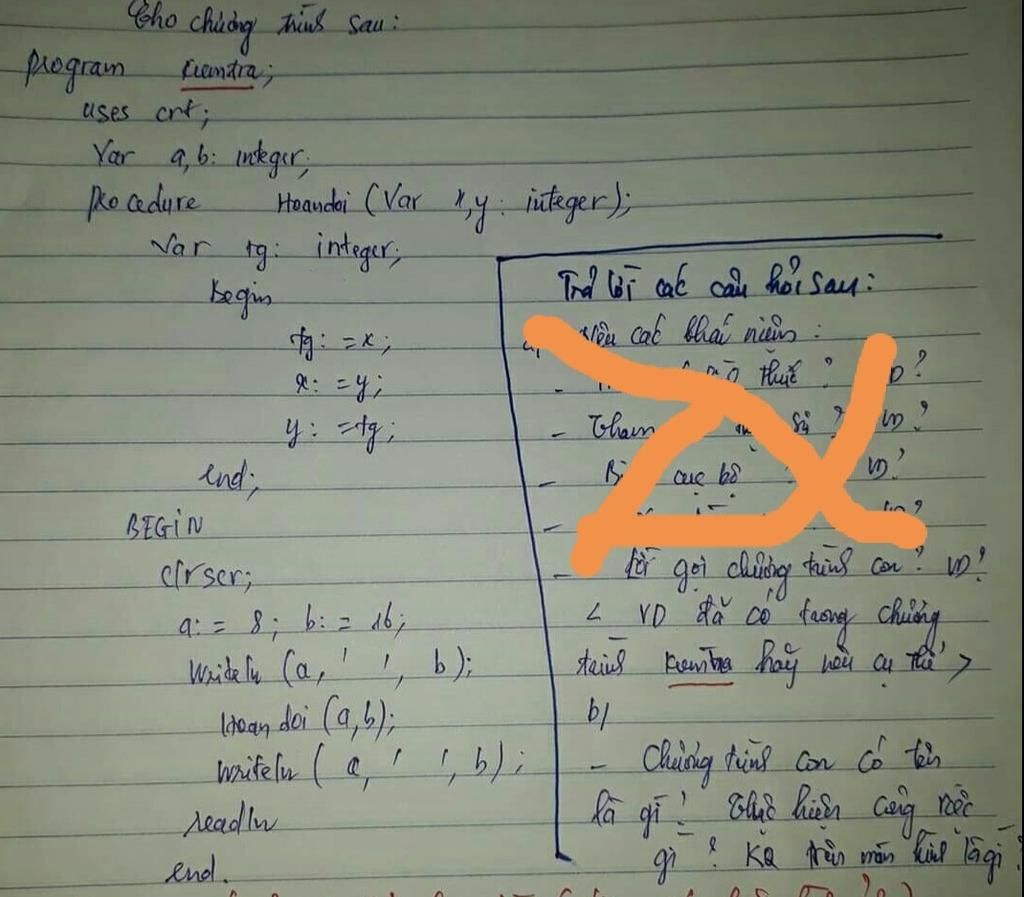 Cho chương trình sau:
program Kiemtra;
uses crt;
Var a, b: integer;
procedure Hoandoi (Var x,y: integer);
Var tg: integer;
Begin
tg: =x;
x: =y;
y: =tg;
end;
BEGIN
clrscr;
a: = 8; b: = 16;
Writeln (a, ' ', b);
Hoan doi (a,b);
writeln ( a, ' ', b);
readln
end.
Trả lời các câu hỏi sau:
Nêu các khái niệm:
- thức?
- Tham ? VD?
- cục bộ VD?
-
- Lời gọi chương trình con? VD?
< VD đã có trong chương
trình Kiemtra hãy nêu cụ thể >
b/
- Chương trình con có tên
là gì? Thực hiện công việc
gì? KQ trên màn hình là gì?